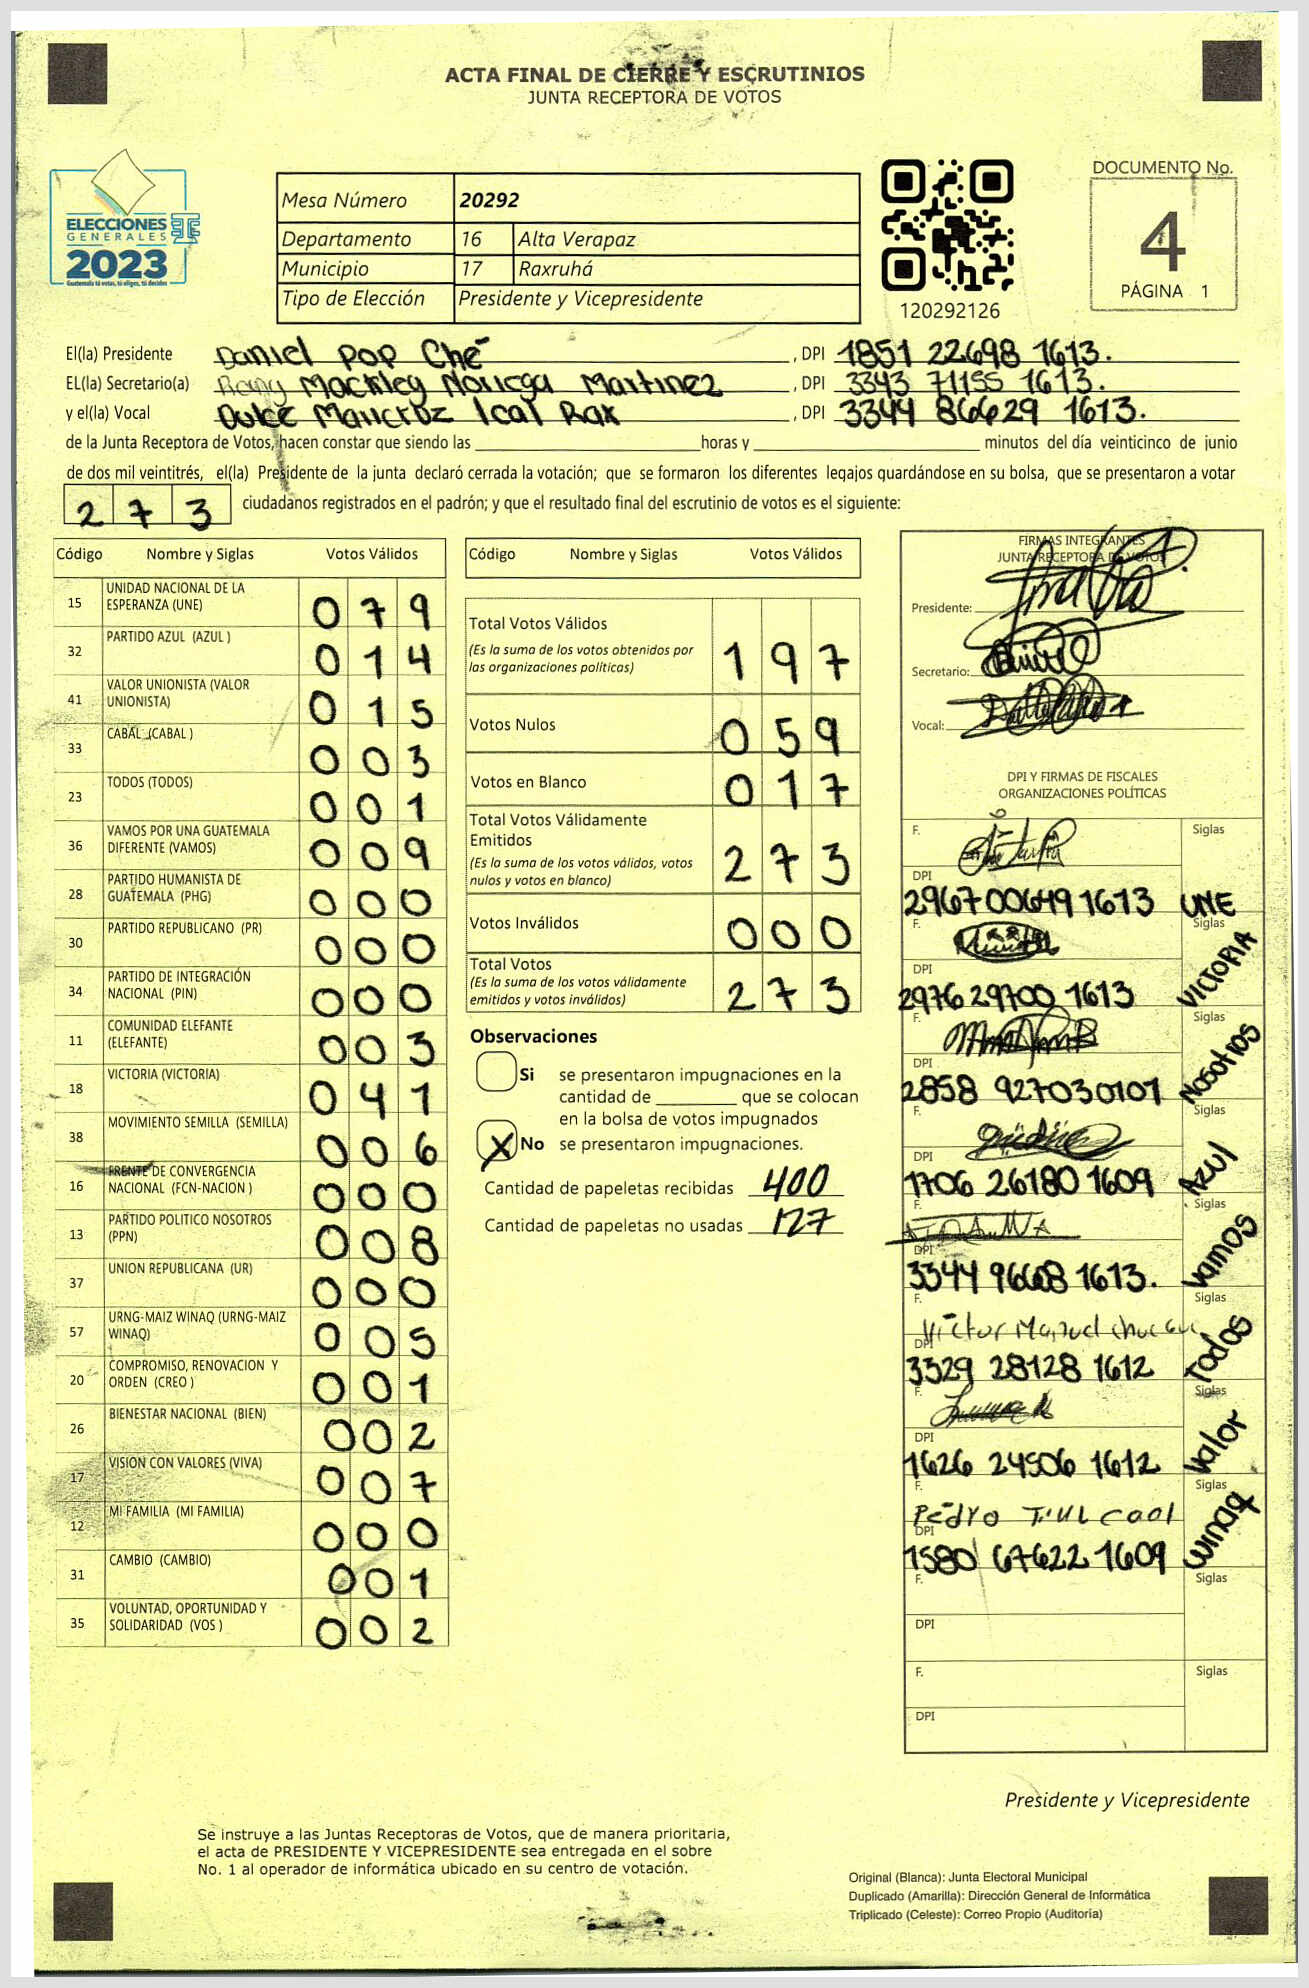 ACTA FINAL DE CIERRE Y ESCRUTINIOS
JUNTA RECEPTORA DE VOTOS
ELECCIONES
GENERALES
2023
Guatemala tú votas, tú eliges, tú decides
Mesa Número 20292
Departamento 16 Alta Verapaz
Municipio 17 Raxruhá
Tipo de Elección Presidente y Vicepresidente
120292126
DOCUMENTO No.
4
PÁGINA 1
El(la) Presidente Daniel Pop Ché, DPI 1851 22698 1613.
EL(la) Secretario(a) Mackley Noriega Martinez, DPI 3343 71155 1613.
y el(la) Vocal Dulce Maricruz Ical Rax, DPI 3344 86629 1613.
de la Junta Receptora de Votos, hacen constar que siendo las ____ horas y ____ minutos del día veinticinco de junio
de dos mil veintitrés, el(la) Presidente de la junta declaró cerrada la votación; que se formaron los diferentes legajos guardándose en su bolsa, que se presentaron a votar
273 ciudadanos registrados en el padrón; y que el resultado final del escrutinio de votos es el siguiente:
Código Nombre y Siglas Votos Válidos
15 UNIDAD NACIONAL DE LA ESPERANZA (UNE) 079
32 PARTIDO AZUL (AZUL ) 014
41 VALOR UNIONISTA (VALOR UNIONISTA) 015
33 CABAL (CABAL ) 003
23 TODOS (TODOS) 001
36 VAMOS POR UNA GUATEMALA DIFERENTE (VAMOS) 009
28 PARTIDO HUMANISTA DE GUATEMALA (PHG) 000
30 PARTIDO REPUBLICANO (PR) 000
34 PARTIDO DE INTEGRACIÓN NACIONAL (PIN) 000
11 COMUNIDAD ELEFANTE (ELEFANTE) 003
18 VICTORIA (VICTORIA) 041
38 MOVIMIENTO SEMILLA (SEMILLA) 006
16 FRENTE DE CONVERGENCIA NACIONAL (FCN-NACION ) 000
13 PARTIDO POLITICO NOSOTROS (PPN) 008
37 UNION REPUBLICANA (UR) 000
57 URNG-MAIZ WINAQ (URNG-MAIZ WINAQ) 005
20 COMPROMISO, RENOVACION Y ORDEN (CREO ) 001
26 BIENESTAR NACIONAL (BIEN) 002
17 VISION CON VALORES (VIVA) 007
12 MI FAMILIA (MI FAMILIA) 000
31 CAMBIO (CAMBIO) 001
35 VOLUNTAD, OPORTUNIDAD Y SOLIDARIDAD (VOS ) 002
Código Nombre y Siglas Votos Válidos
Total Votos Válidos
(Es la suma de los votos obtenidos por
las organizaciones políticas) 197
Votos Nulos 059
Votos en Blanco 017
Total Votos Válidamente
Emitidos
(Es la suma de los votos válidos, votos
nulos y votos en blanco) 273
Votos Inválidos 000
Total Votos
(Es la suma de los votos válidamente
emitidos y votos inválidos) 273
Observaciones
Si se presentaron impugnaciones en la
cantidad de ____ que se colocan
en la bolsa de votos impugnados
X No se presentaron impugnaciones.
Cantidad de papeletas recibidas 400
Cantidad de papeletas no usadas 127
FIRMAS INTEGRANTES
JUNTA RECEPTORA DE VOTOS
Presidente:
Secretario:
Vocal:
DPI Y FIRMAS DE FISCALES
ORGANIZACIONES POLÍTICAS
F. Siglas
DPI
2967 00649 1613 UNE
F. Siglas
DPI
2976 29700 1613 VICTORIA
F. Siglas
DPI
2858 92703 0101 Nosotros
F. Siglas
DPI
1706 26180 1609 Azul
F. Siglas
DPI
3344 96668 1613. Vamos
F. Siglas
Víctor Manuel
DPI
3329 28128 1612 Todos
F. Siglas
DPI
1626 24506 1612 Valor
F. Siglas
Pedro Tiul Caal
DPI
1580 67622 1609 Winaq
F. Siglas
DPI
F. Siglas
DPI
Presidente y Vicepresidente
Se instruye a las Juntas Receptoras de Votos, que de manera prioritaria,
el acta de PRESIDENTE Y VICEPRESIDENTE sea entregada en el sobre
No. 1 al operador de informática ubicado en su centro de votación.
Original (Blanca): Junta Electoral Municipal
Duplicado (Amarilla): Dirección General de Informática
Triplicado (Celeste): Correo Propio (Auditoría)